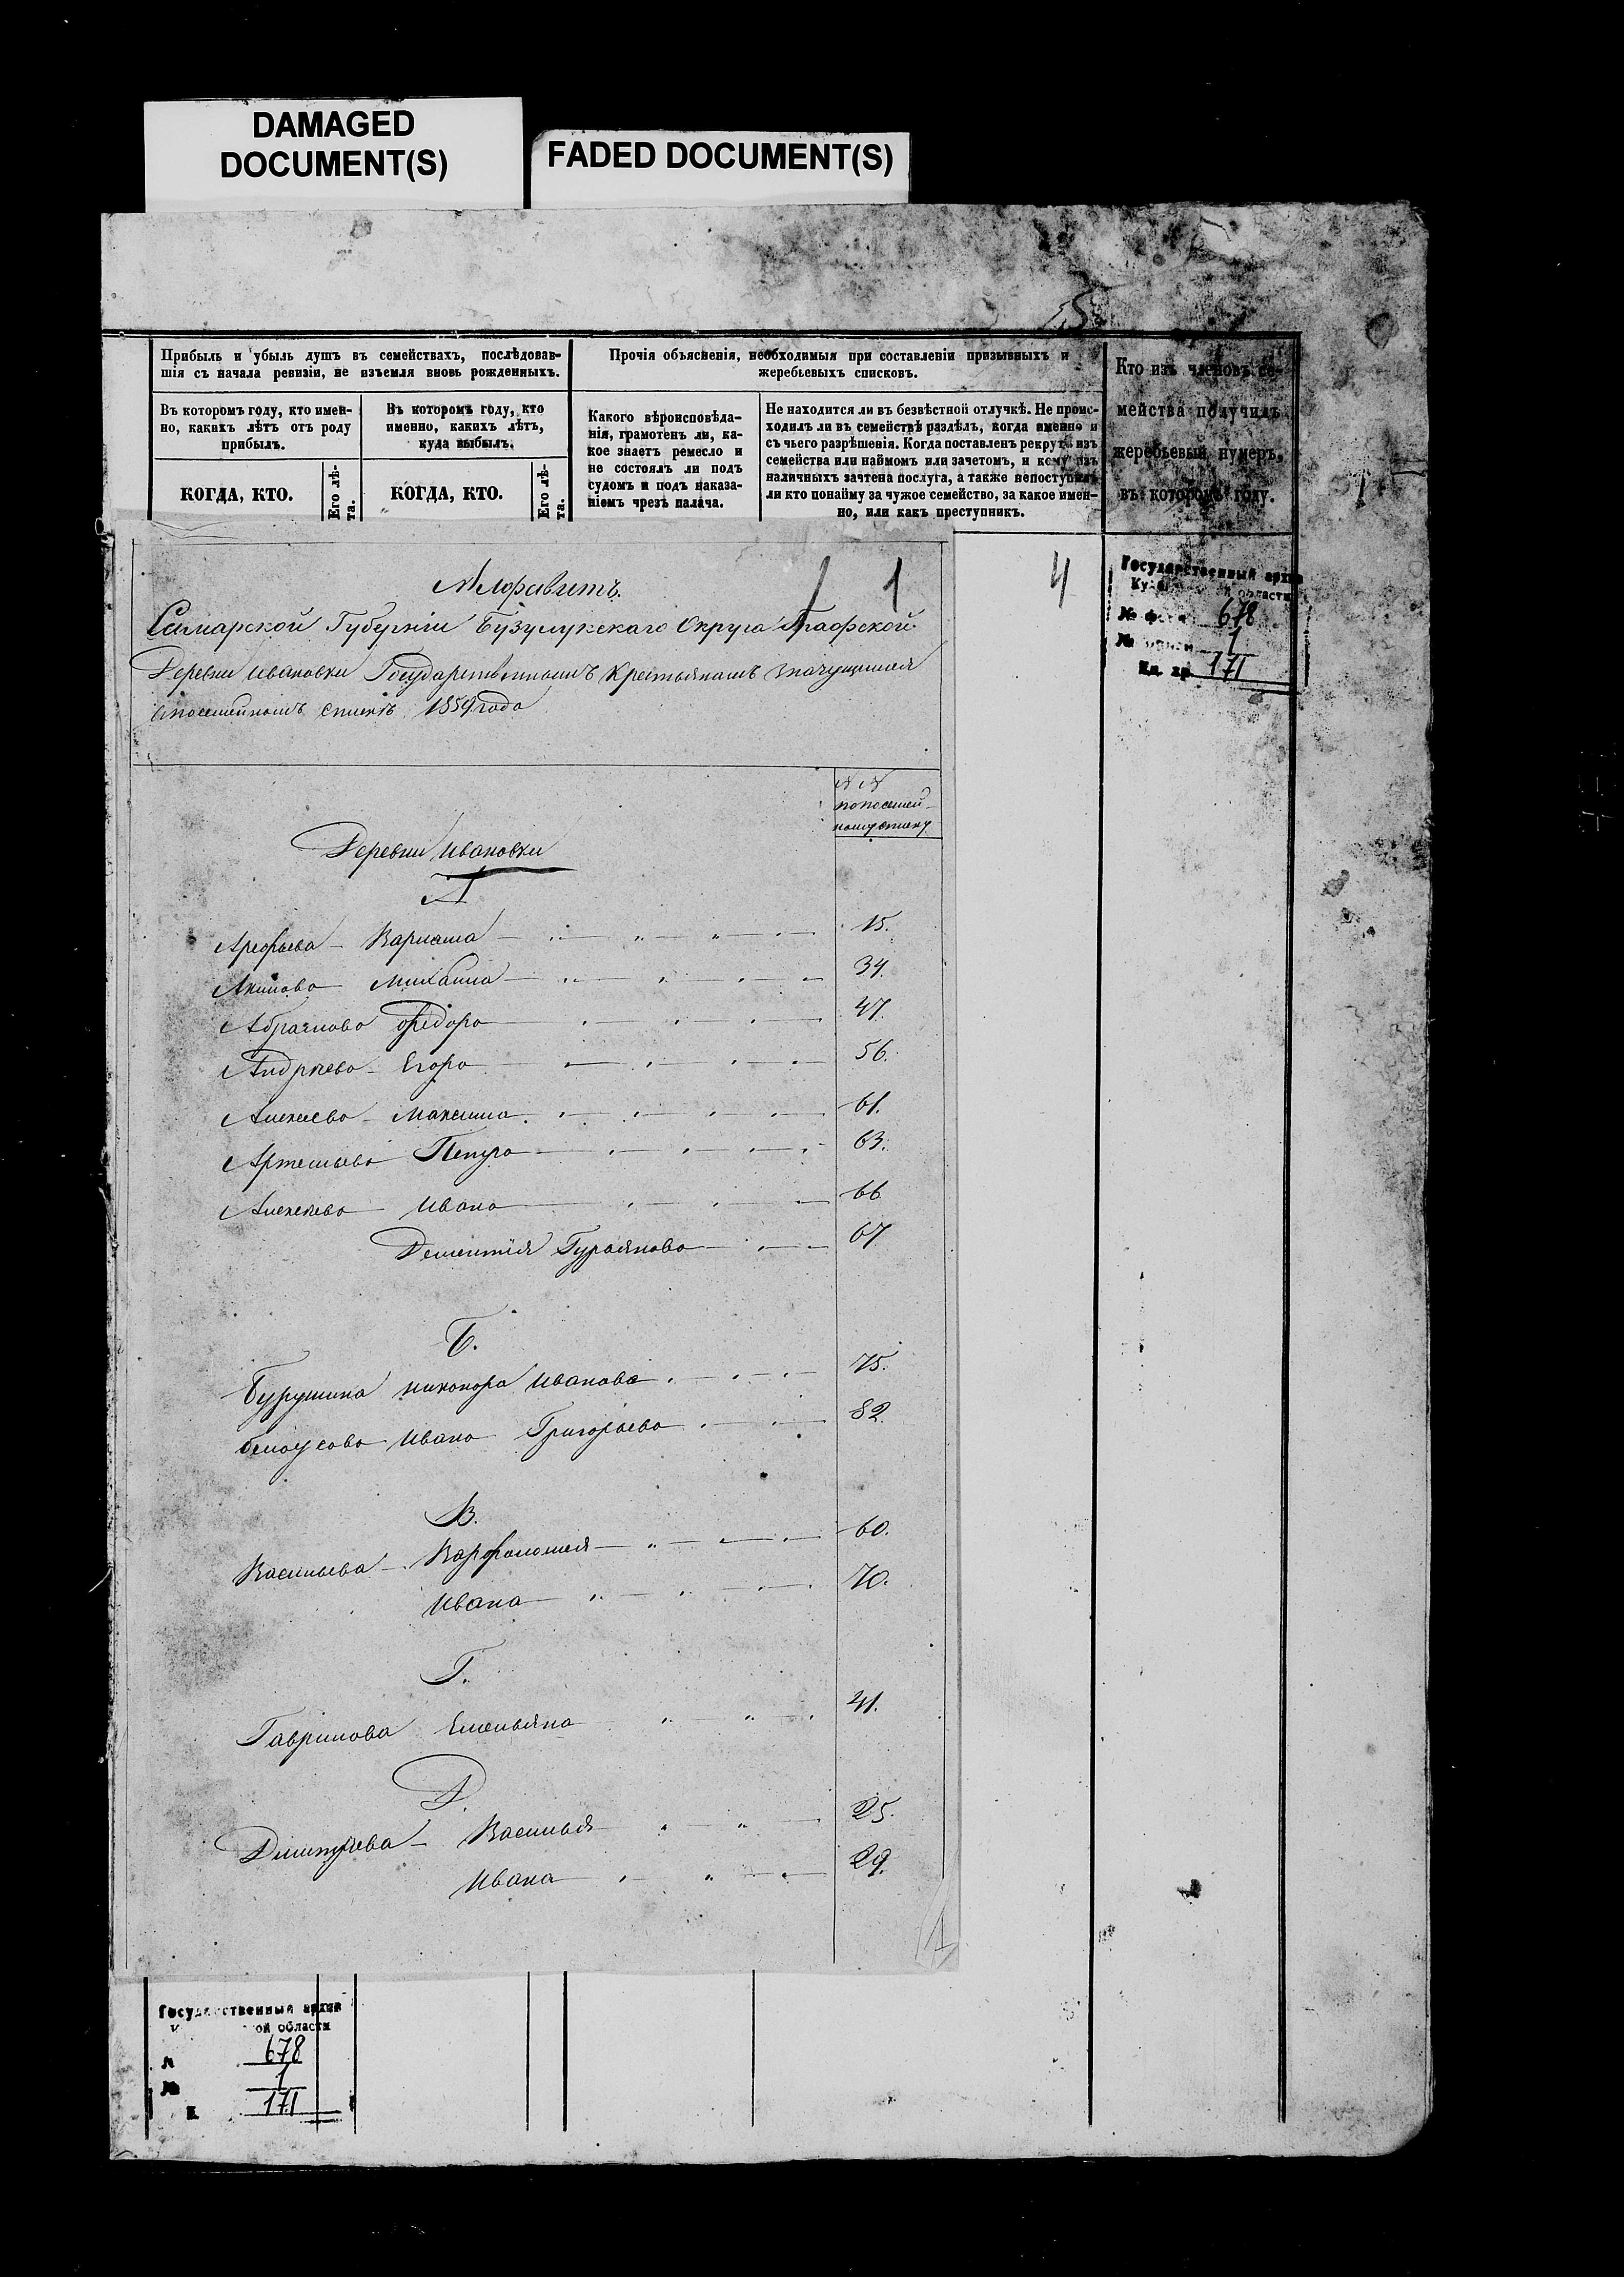 DAMAGED
DOCUMENT(S)
FADED DOCUMENT(S)
Прибыль и убыль душъ въ семействахъ, послѣдовав-
шія съ начала ревизіи, не изъемля вновь рожденныхъ.
Въ которомъ году, кто имен-
но, какихъ лѣтъ отъ роду
прибылъ.
КОГДА, КТО.
Его лѣ-
та.
Въ которомъ году, кто
именно, какихъ лѣтъ,
куда выбылъ.
КОГДА, КТО.
Его лѣ-
та.
Прочія объясненія, необходимыя при составленіи призывныхъ и
жеребьевыхъ списковъ.
Какого вѣроисповѣда-
нія, грамотенъ ли, ка-
кое знаетъ ремесло и
не состоялъ ли подъ
судомъ и подъ наказа-
ніемъ чрезъ палача.
Не находится ли въ безвѣстной отлучкѣ. Не проис-
ходилъ ли въ семействѣ раздѣлъ, когда именно и
съ чьего разрѣшенія. Когда поставленъ рекрутъ изъ
семейства или наймомъ или зачетомъ, и кому изъ
наличныхъ зачтена послуга, а также непоступилъ
ли кто понайму за чужое семейство, за какое имен-
но, или какъ преступникъ.
Кто изъ членовъ се-
мейства получилъ
жеребьевый нумеръ,
въ которомъ году.
Алфавитъ.
1
4
Самарской Губерніи Бузулукскаго Округа Графской
Деревни Ивановки Государственнымъ Крестьянамъ значущимся
въ посемейномъ спискѣ 1859 года
Государственный архив
области
678
1
Ед. хр. 171
№ №
по посемей-
ному списку
Деревни Ивановки
А
Арефьева - Варлама 15.
Акимова Михаила 34.
Абрамова Федора 47.
Андреева - Егора 56.
Алексеева - Максима 61.
Артемьева Петра 63.
Алексеева Ивана 66
Дементія Гурьянова 67
Б.
Бурушина Никонора Иванова 75.
Белоусова Ивана Григорьева 82.
В.
Васильева - Варфоломея 60.
Ивана 70.
Г.
Гаврилова Емельяна 41.
Д.
Дмитриева - Василья 25.
Ивана 29.
Государственный архив
ой области
678
1
171